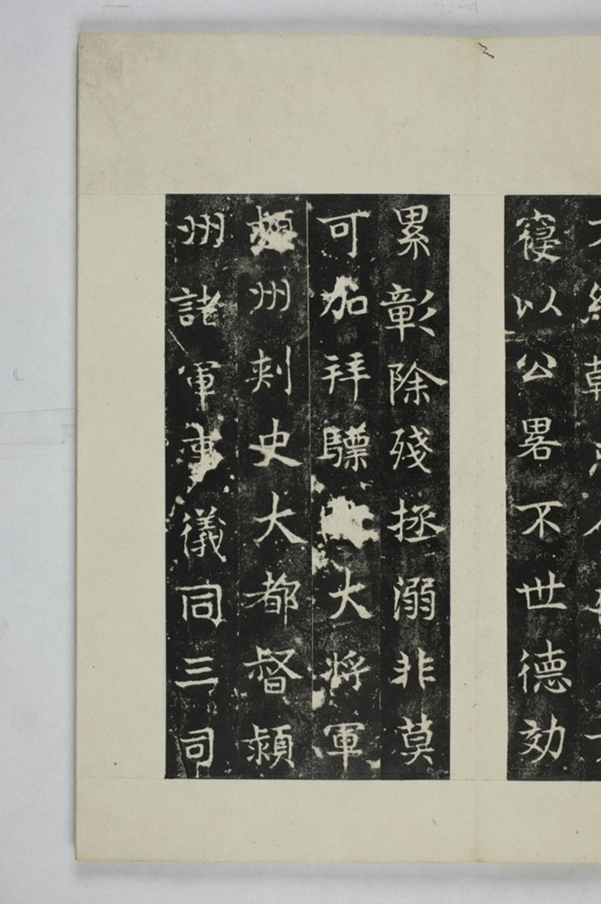 寝以公畧不世德効
累彰除殘拯溺非莫
可加拜驃大將軍
州刺史大都督潁
州諸軍事儀同三司